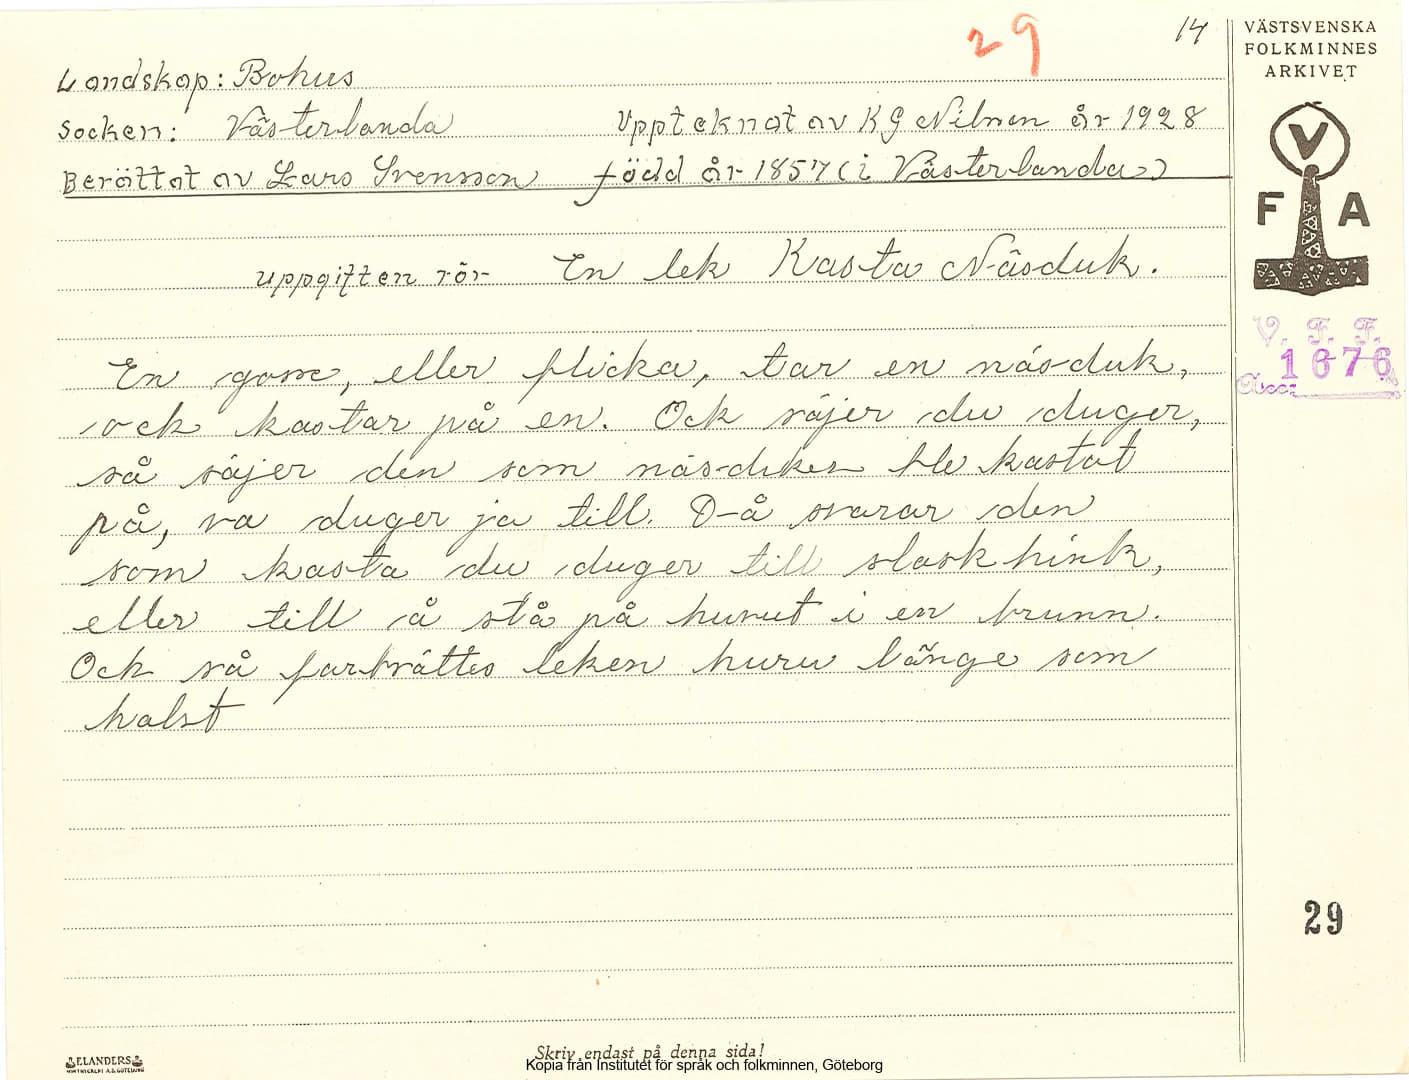 29
14
VÄSTSVENSKA
FOLKMINNES
ARKIVET
Landskap: Bohus
Socken: Västerlanda Upptecknat av KG Nilsson år 1928
Berättat av Lars Svensson född år 1857 (i Västerlanda)
V
F A
uppgiften rör En lek Kasta Näsduk.
V. F. F.
Acc: 1676
En gosse, eller flicka, tar en näsduk,
ock kastar på en. Ock säjer du duger,
så säjer den som näsduken ble kastat
på, va duger ja till. Då svarar den
som kasta du duger till slaskhink,
eller till å stå på huvut i en brunn.
Ock så fortsättes leken huru länge som
halst
29
ELANDERS
Skriv endast på denna sida!
Kopia från Institutet för språk och folkminnen, Göteborg